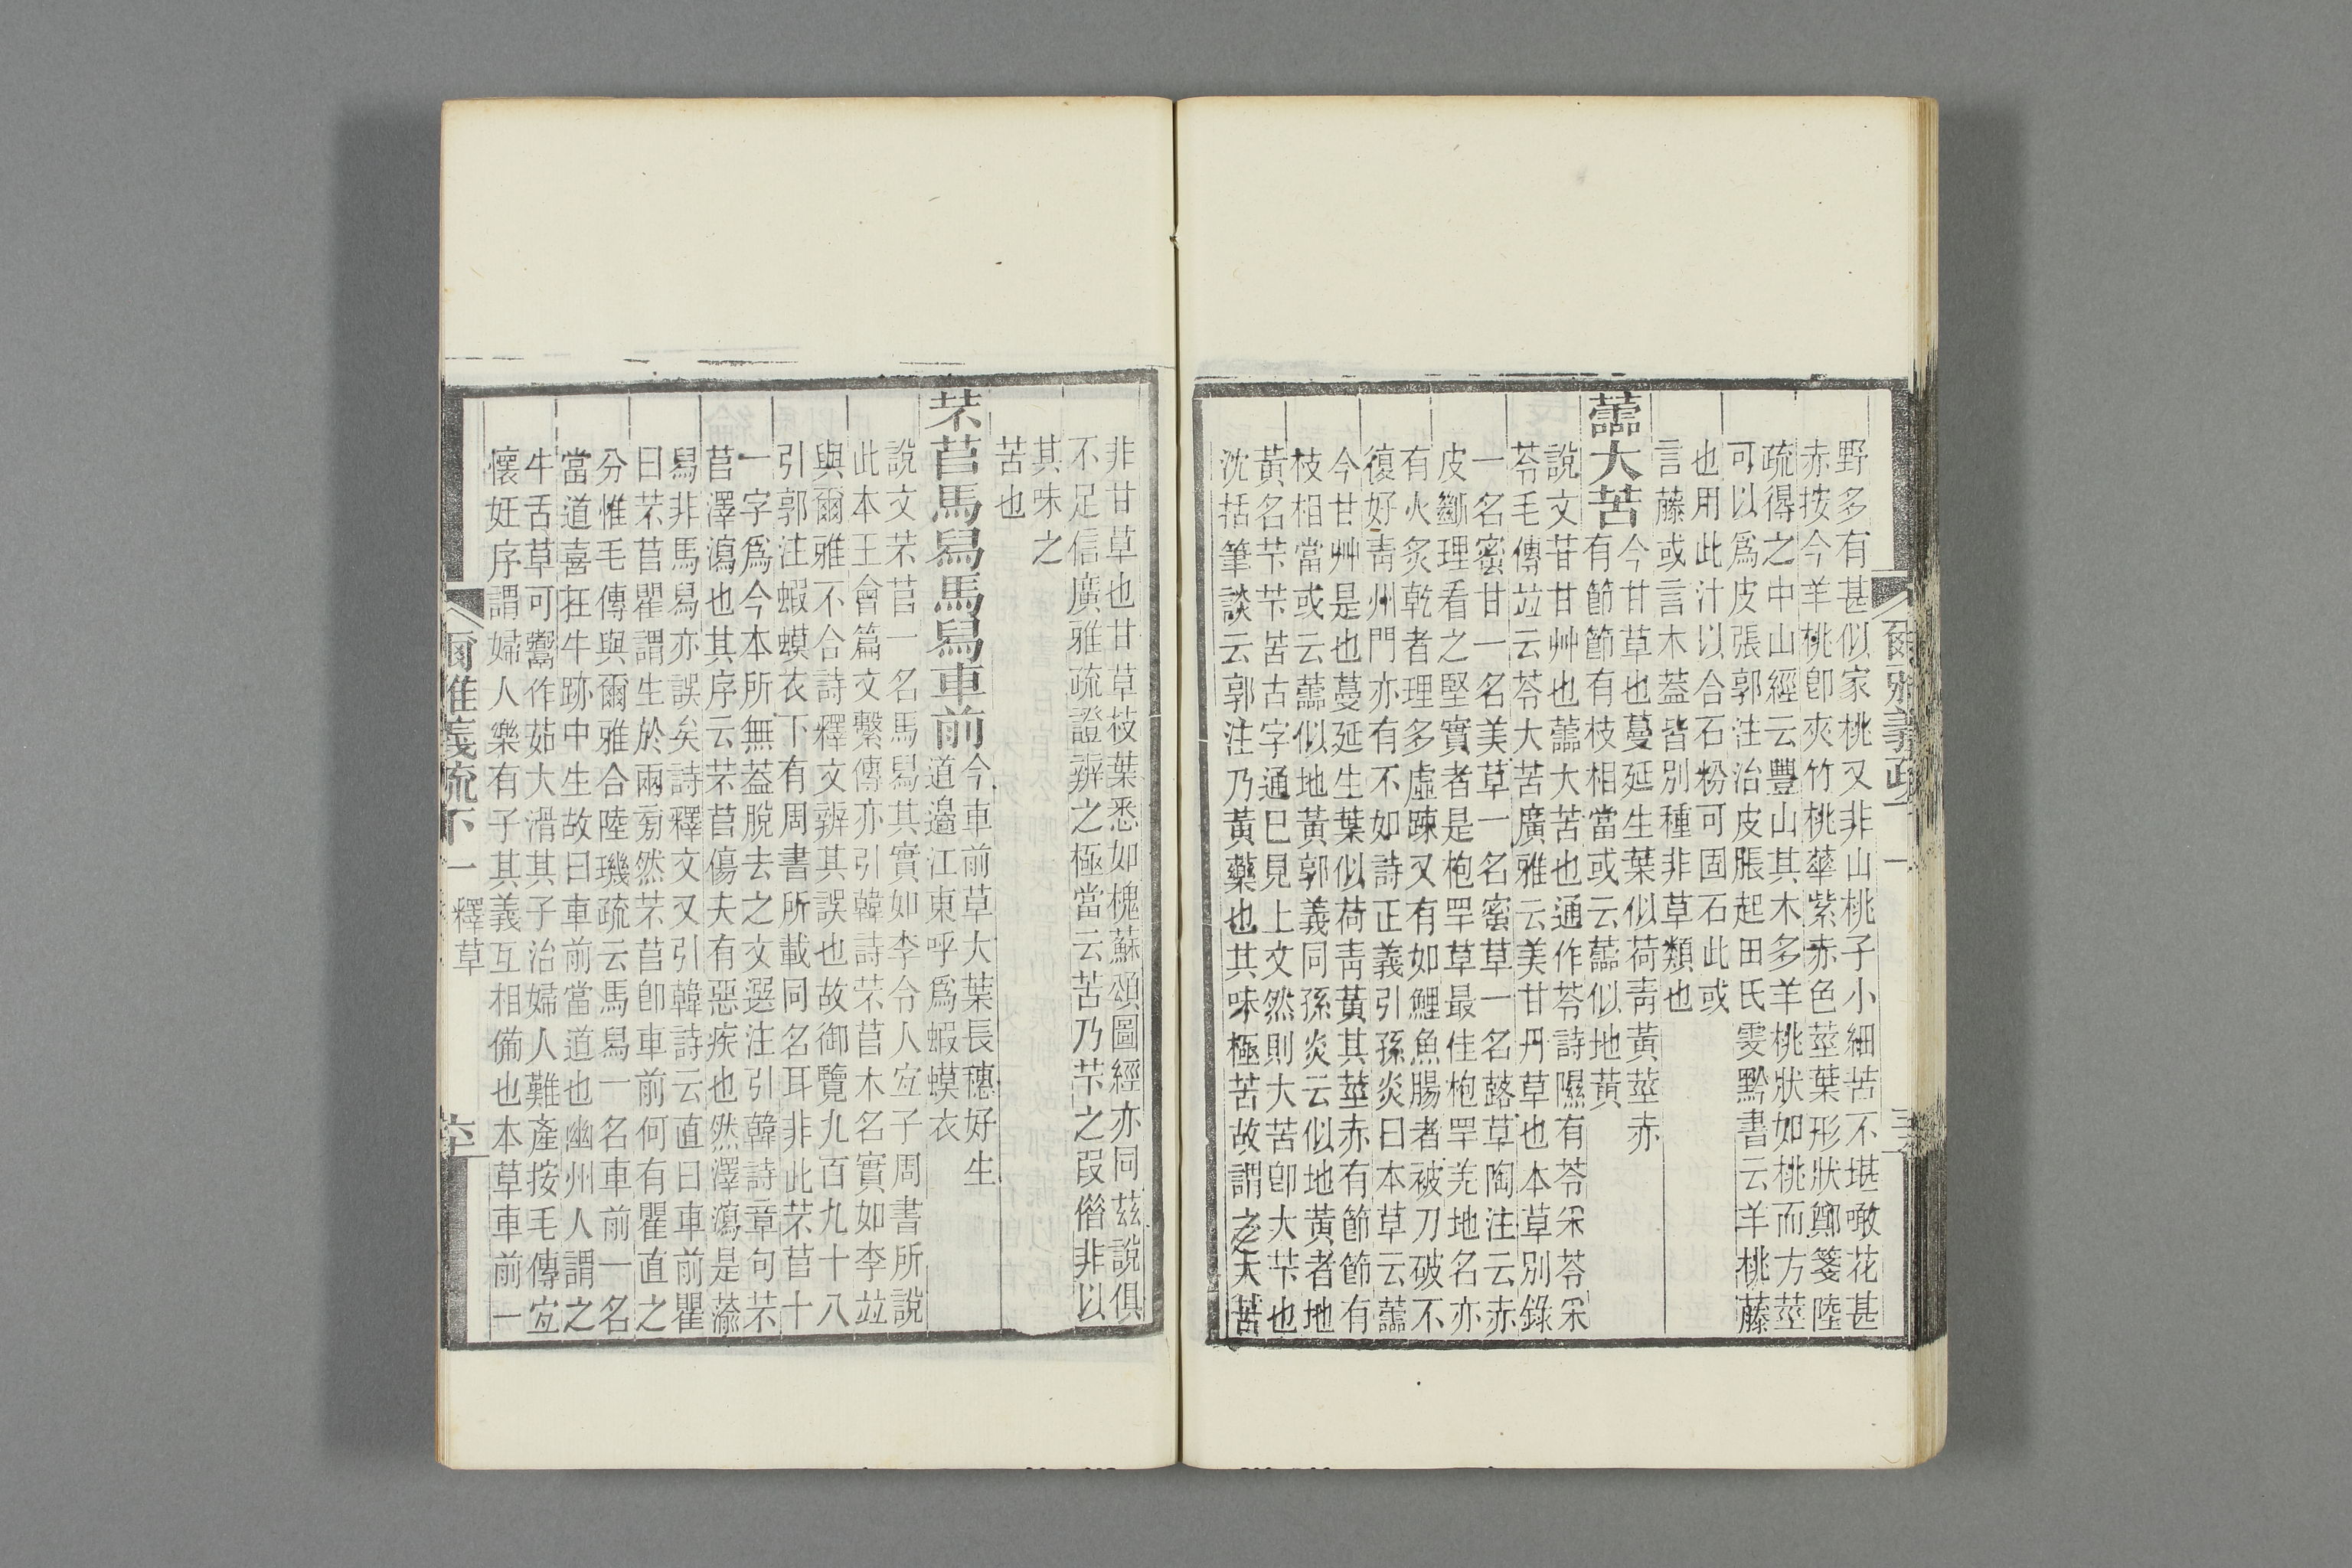 爾雅義疏下一
野多有甚似家桃又非山桃子小細苦不堪噉花甚
赤按今羊桃卽夾竹桃華紫赤色莖葉形狀鄭箋陸
疏得之中山經云豐山其木多羊桃狀如桃而方莖
可以爲皮張郭注治皮脹起田氏雯黔書云羊桃藤
也用此汁以合石粉可固石此或
言藤或言木葢皆別種非草類也
蘦大苦
今甘草也蔓延生葉似荷靑黃莖赤
有節節有枝相當或云蘦似地黃
說文苷甘艸也蘦大苦也通作苓詩隰有苓采苓采
苓毛傳竝云苓大苦廣雅云美甘丹草也本草別錄
一名蜜甘一名美草一名蜜草一名蕗草陶注云赤
皮斷理看之堅實者是枹罕草最佳枹罕羌地名亦
有火炙乾者理多虛踈又有如鯉魚腸者被刀破不
復好靑州門亦有不如詩正義引孫炎曰本草云蘦
今甘艸是也蔓延生葉似荷靑黃其莖赤有節節有
枝相當或云蘦似地黃郭義同孫炎云似地黃者地
黃名芐芐苦古字通已見上文然則大苦卽大芐也
沈括筆談云郭注乃黃藥也其味極苦故謂之大苦
非甘草也甘草枝葉悉如槐蘇頌圖經亦同茲說俱
不足信廣雅疏證辨之極當云苦乃芐之叚偺非以
其味之
苦也
芣苢馬舄馬舄車前
今車前草大葉長穗好生
道邊江東呼爲蝦蟆衣
說文芣苢一名馬舄其實如李令人宜子周書所說
此本王會篇文繫傳亦引韓詩芣苢木名實如李竝
與爾雅不合詩釋文辨其誤也故御覽九百九十八
引郭注蝦蟆衣下有周書所載同名耳非此芣苢十
一字爲今本所無葢脫去之文選注引韓詩章句芣
苢澤瀉也其序云芣苢傷夫有惡疾也然澤瀉是蕍
舄非馬舄亦誤矣詩釋文又引韓詩云直曰車前瞿
曰芣苢瞿謂生於兩旁然芣苢卽車前何有瞿直之
分惟毛傳與爾雅合陸璣疏云馬舄一名車前一名
當道喜在牛跡中生故曰車前當道也幽州人謂之
牛舌草可鬻作茹大滑其子治婦人難產按毛傳宜
懷妊序謂婦人樂有子其義互相備也本草車前一
爾雅義疏下一
釋草